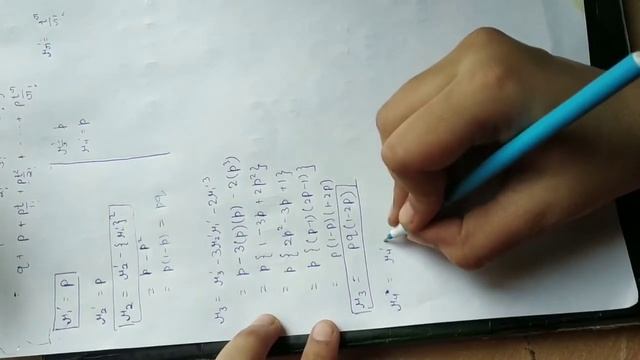 = q + p + pt²/2! + ... + pt^r/r!
μ₁' = p
μ₂' = p
μ₃' = p
μ₄' = p
μ₂ = μ₂ - {μ₁'}²
= p - p²
= p(1-p) = pq,
μ₃ = μ₃' - 3μ₂'μ₁' - 2μ₁'³
= p - 3(p)(p) - 2(p³)
= p{1 - 3p + 2p²}
= p{2p² - 3p + 1}
= p{(p-1)(2p-1)}
= p(1-p)(1-2p)
μ₃ = pq(1-2p)
μ₄ = μ₄'